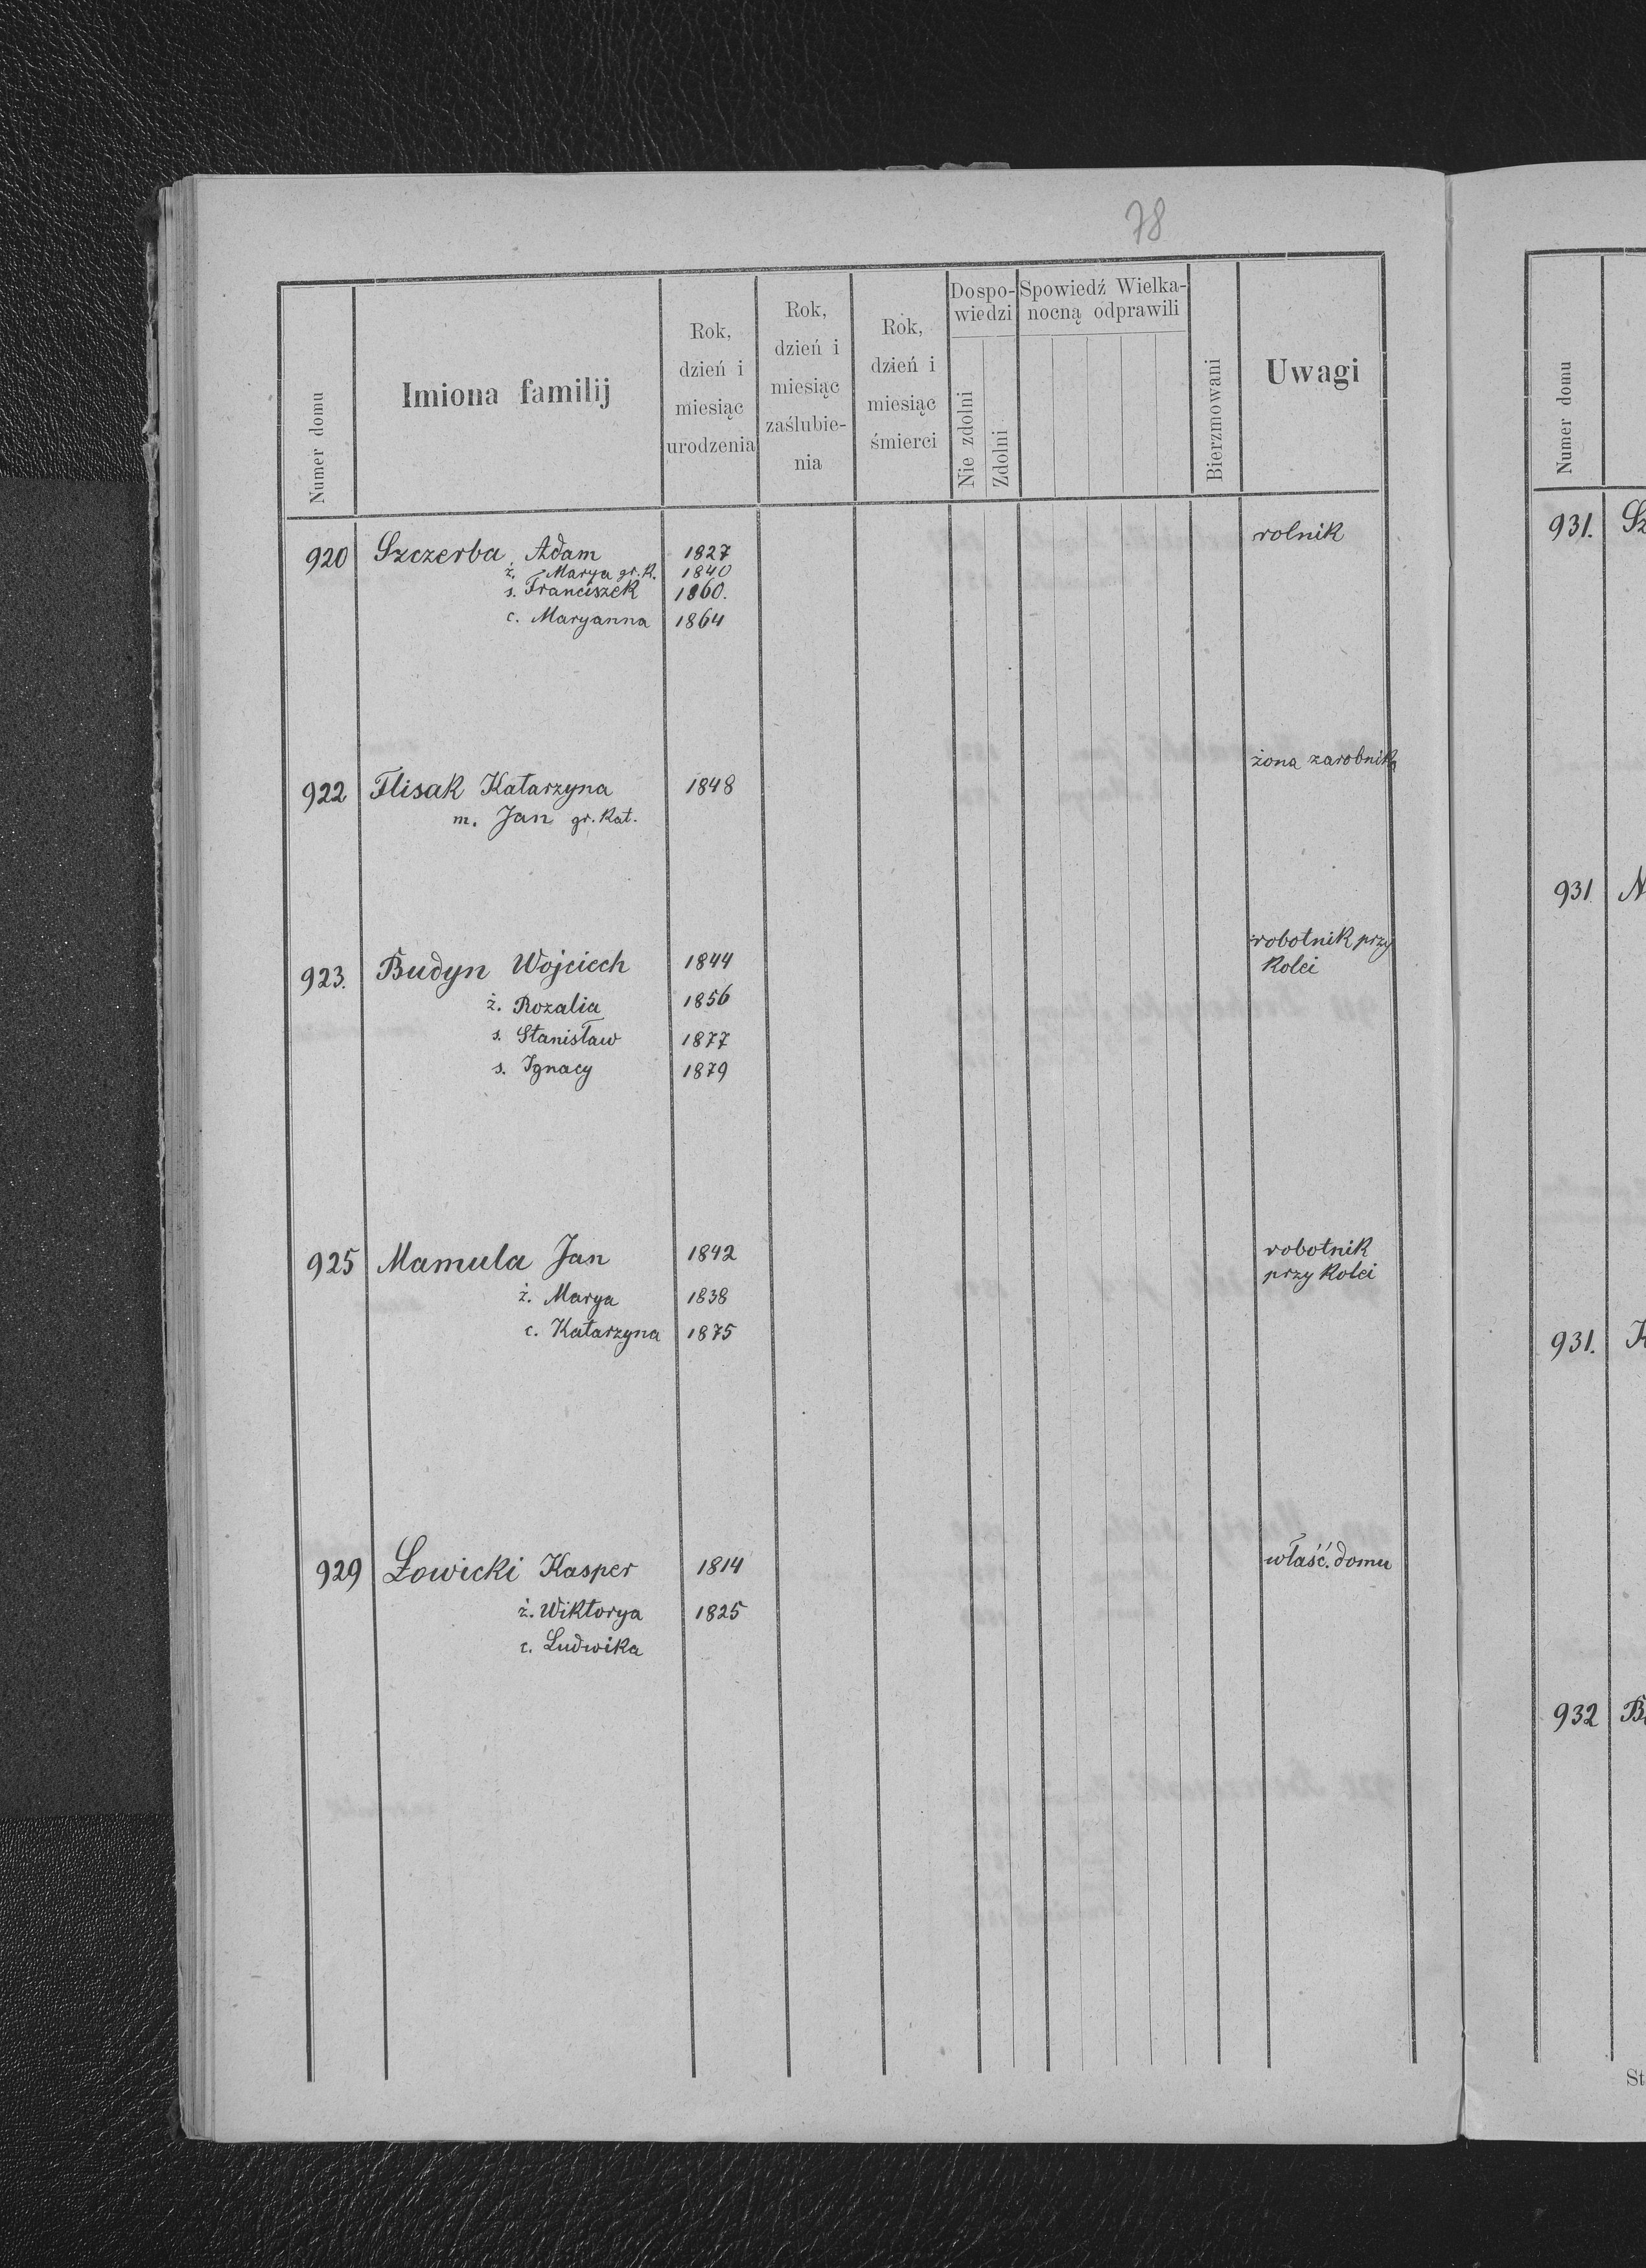 78
Numer domu
Imiona familij
Rok, dzień i miesiąc urodzenia
Rok, dzień i miesiąc zaślubie-nia
Rok, dzień i miesiąc śmierci
Dospo-wiedzi
Nie zdolni
Zdolni
Spowiedź Wielka-nocną odprawili
Bierzmowani
Uwagi
920 Szczerba Adam 1827 rolnik
ż. Marya gr. K. 1840
s. Franciszek 1860.
c. Maryanna 1864
922 Flisak Katarzyna 1848 żona zarobnika
m. Jan gr. kat.
923. Budyn Wojciech 1844 robotnik przy
kolei
ż. Rozalia 1856
s. Stanisław 1877
s. Ignacy 1879
925 Mamula Jan 1842 robotnik
przy kolei
ż. Marya 1838
c. Katarzyna 1875
929 Łowicki Kasper 1814 właść. domu
ż. Wiktorya 1825
c. Ludwika
Numer domu
931. Sz
931. N
931. K
932 B
St